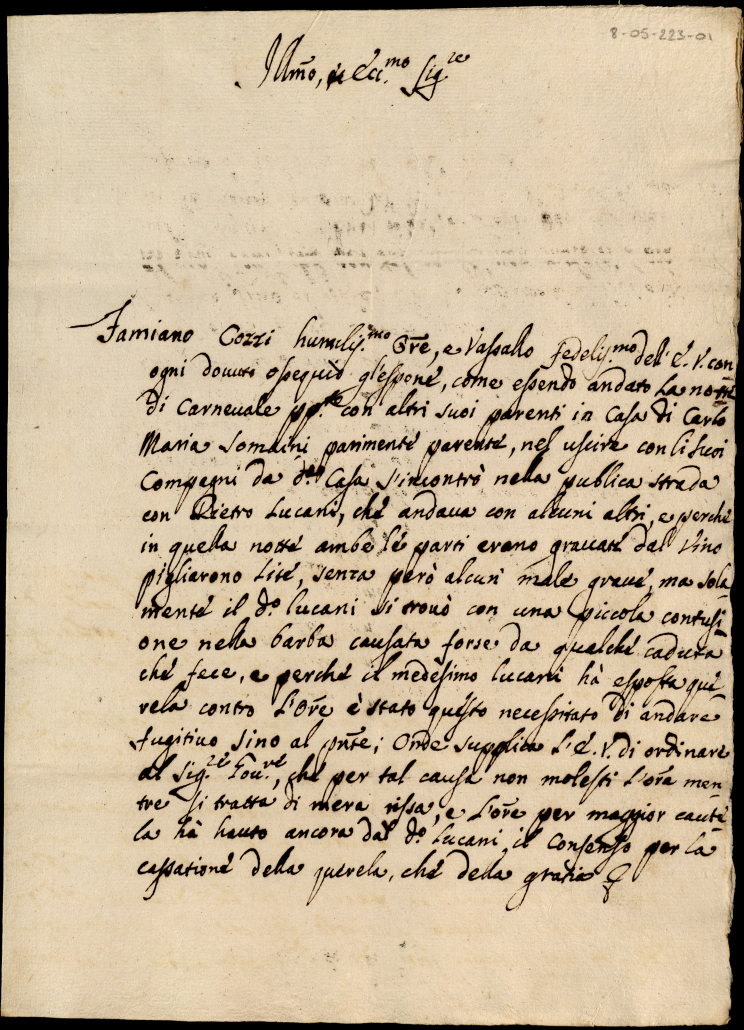 8-05-223-01
Ill.mo, et Ecc.mo Sig.re
Famiano Cozzi humilis.mo Ore, e Vassallo fedelis.mo dell'E.V. con
ogni dovuto ossequio gl'espone, come essendo andato la notte
di Carneuale pp.te con altri suoi parenti in Casa di Carlo
Maria Somaini parimente parente, nel uscire con li suoi
Compagni da d.a Casa s'incontrò nella publica strada
con Pietro Lucani, che andaua con alcuni altri, e perche
in quella notte ambe le parti erano grauate dal Vino
pigliarono lite, senza però alcun male graue, ma sola
mente il d.o Lucani si trouò con una piccola contusi
one nella barba causata forse da qualche caduta
che fece, e perche il medesimo Lucani hà esposta que
rela contro l'Ore è stato questo necessitato di andare
fugitiuo sino al pnte; Onde supplica l'E.V. di ordinare
al Sig.re Gou.re, che per tal causa non molesti l'Ore men
tre si tratta di mera rissa, e l'Ore per maggior caute
la hà hauto ancora dal d.o Lucani il Consenso per la
cassatione della querela, che della gratia